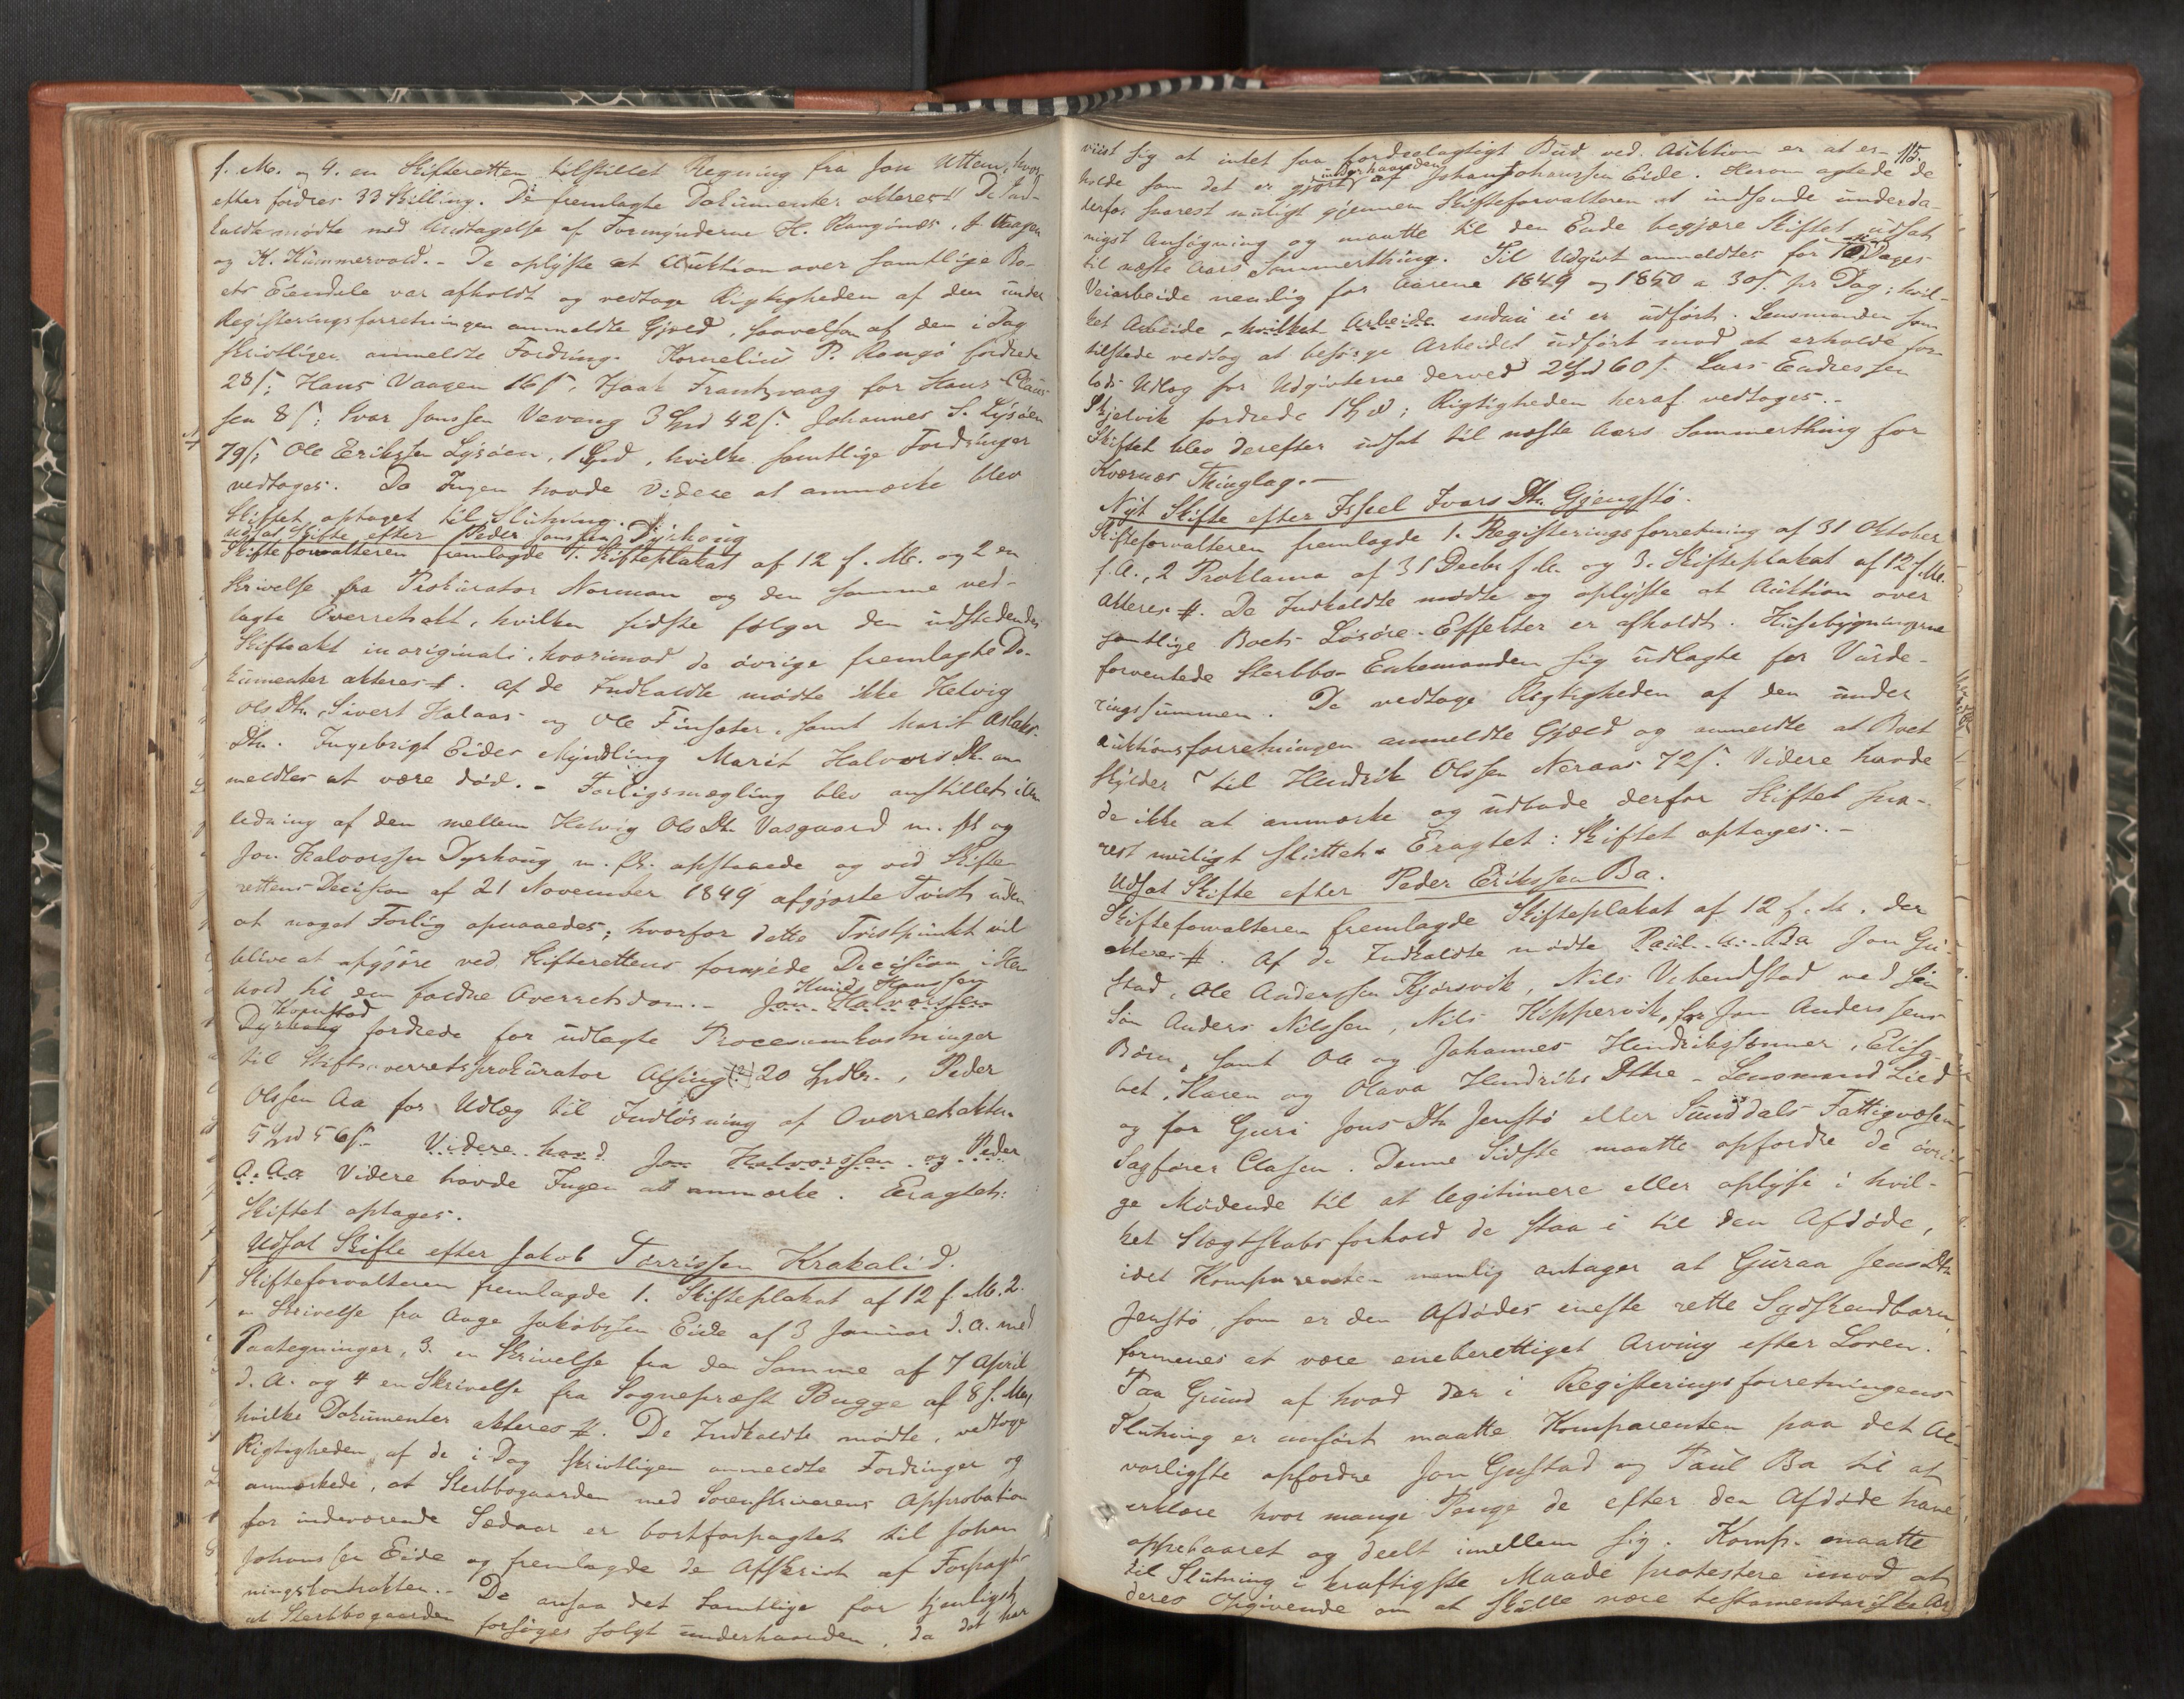 f. M. og 4. en Skifteretten tilstillet Regning fra Jon Utten, hvor-
efter fordres 33 Skilling. De fremlagte Dokumenter akteres #. De Ind-
kaldte mødte med Undtagelse af Formynderne H. Rangønæs, A Vaagen
og K. Hummervold. - De oplyste at Auktion over samtlige Bo-
ets Eiendele var afholdt og vedtoge Rigtigheden af den under
Registeringsforretningen anmeldte Gjeld, saavelsom af den i Dag
skriftligen anmeldte Fordring. Kornelius P. Rangø fordrede
28 s; Hans Vaagen 16 s. Isaak Frantzvaag for Hans Claus-
sen 8 s; Ivar Jonssen Vevang 3 Spd 42 s. Johannes S. Lysøen
79 s; Ole Erikssen Lysøen, 1 Spd, hvilke samtlige Fordringer
vedtoges. Da Ingen havde Videre at anmærke blev
Skiftet optaget til Slutning.
Udsat Skifte efter Peder Jonssen Dyrhoug
Skifteforvalteren fremlagde 1. Skifteplakat af 12 f. M. og 2 en
Skrivelse fra Prokurator Norman og den samme ved-
lagte Overretsakt, hvilken sidste følger den udstedende
Skifteakt in originali, hvorimod de øvrige fremlagte Do-
kumenter akteres #. Af de Indkaldte mødte ikke Helvig
Ols Dtr, Sivert Halaas og Ole Finsæter, samt Marit Aslaks
Dtr. Ingebrigt Eides Myndling Marit Halvors Dtr an-
meldtes at være død. - Forligsmægling blev anstillet i An-
ledning af den mellem Helvig Ols Dtr Vasgaard m. fl. og
Jon Halvorssen Dyrhoug m. fl. opstaaede og ved Skifte-
rettens Decision af 21 November 1849 afgjorte Tvist uden
at noget Forlig opnaaedes; hvorfor dette Tvistpunkt vil
blive at afgjøre ved Skifterettens fornyede Decision i Hen-
hold til den faldne Overretsdom. - Jon Halvorssen
Knud Hanssen
Dyrhoug fordrede for udlagte Procesomkostninger
til Stiftsoverretsprokurator Alsing (?) 20 Spdlr., Peder
Olssen Aa for Udlæg til Indløsning af Overretsakten
5 Spd 56 s. Videre havd Jon Halvorssen og Peder
O. Aa Videre havde Ingen at anmærke. Eragtet:
Skiftet optages.
Udsat Skifte efter Jakob Tørrissen Krakalid.
Skifteforvalteren fremlagde 1. Skifteplakat af 12 f. M. 2.
en Skrivelse fra Aage Jakobssen Eide af 3 Januar d. A. med
Paategninger, 3. en Skrivelse fra den Samme af 7 April
d. A. og 4 en Skrivelse fra Sognepræst Bugge af 8 f. M.,
hvilke Dokumenter akteres #. De Indkaldte mødte, vedtoge
Rigtigheden af de i Dag skriftligen anmeldte Fordringer og
anmærkede, at Sterbbogaarden med Sorenskriverens Approbation
for indeværende Sædaar er bortforpagtet til Johan
Johanssen Eide og fremlagde de Afskrift af Forpagt-
ningskontrakten. - De ansaa det Samtlige for tjenligst
at Sterbbogaarden forsøges solgt underhaanden, da det har
115.
viist sig at intet saa fordelagtigt Bud ved Auktion er at er-
holde som det er gjort underhaanden af Johan Johanssen Eide. Herom agtede de
derfor snarest muligt gjennem Skifteforvalteren at indsende underda-
nigst Ansøgning og maatte til den Ende begjære Skiftet udsat
til næste Aars Sommerthing. Til Udgivt anmeldtes for Dages
Veiarbeide nemlig for Aarene 1849 og 1850 a 30 s. pr Dag; hvil-
ket Arbeide hvilket Arbeide endnu ei er udført. Lensmanden som
tilstede vedtog at besørge Arbeidet udført mod at erholde for-
lods Udlæg for Udgivterne derved 2 Spd 60 s. Lars Endressen
Skjelvik fordrede 1 Spd; Rigtigheden heraf vedtoges. -
Skiftet blev derefter udsat til næste Aars Sommerthing for
Kvernæs Thinglag. -
Nyt Skifte efter Issel Ivars Dtr. Gjengstø.
Skifteforvalteren fremlagde 1. Registeringsforretning af 31 Oktober
f. A., 2 Proklama af 31 Decbr f. A. og 3. Skifteplakat af 12 f. M.
akteres #. De Indkaldte mødte og oplyste at Auktion over
samtlige Boets Løsøre-Effekter er afholdt. Husebygningerne
forventede Sterbbo-Enkemanden sig udlagte for Vurde-
ringssummen. De vedtoge Rigtigheden af den under
Auktionsforretningen anmeldte Gjeld og anmeldte at Boet
skylder til Hendrik Olssen Neraas 72 s. Videre havde
de ikke at anmærke og udbade derfor Skiftet sna-
rest muligt sluttet. Eragtet: Skiftet optages. -
Udsat Skifte efter Peder Erikssen Ba.
Skifteforvalteren fremlagde Skifteplakat af 12 f. M. der
akteres #. Af de Indkaldte mødte Paul Ba Jon Gu-
stad, Ole Anderssen Kjørsvik, Nils Vebenstad ved sin
Søn Anders Nilssen, Nils Kippervik, for Jon Anderssens
Børn, samt Ole og Johannes Hendrikssønner, Elisa-
bet, Karen og Olava Hendriks Dttre - Lensmand Lied
og for Guri Jons Dtr Jenstø eller Sunddals Fattigvæsen
Sagfører Clasen. Denne Sidste maatte opfordre de øvri-
ge Mødende til at legitimere eller oplyse i hvil-
ket Slægtskabsforhold de staa i til den Afdøde,
idet Komparenten nemlig antager at Guraa Jens Dtr
Jenstø, som er den Afdødes eneste rette Sydskendbarn,
formenes at være eneberettiget Arving efter Loven.
Paa Grund af hvad der i Registeringsforretningens
Slutning er anført maatte Komparenten paa det Al-
vorligste opfordre Jon Gustad og Paul Ba til at
erklære hvor mange Penge de efter den Afdøde have
oppebaaret og deelt imellem sig. Komp. maatte
til Slutning i kraftigste Maade protestere imod at
deres Opgivende om at skulle være testamentariske Ar